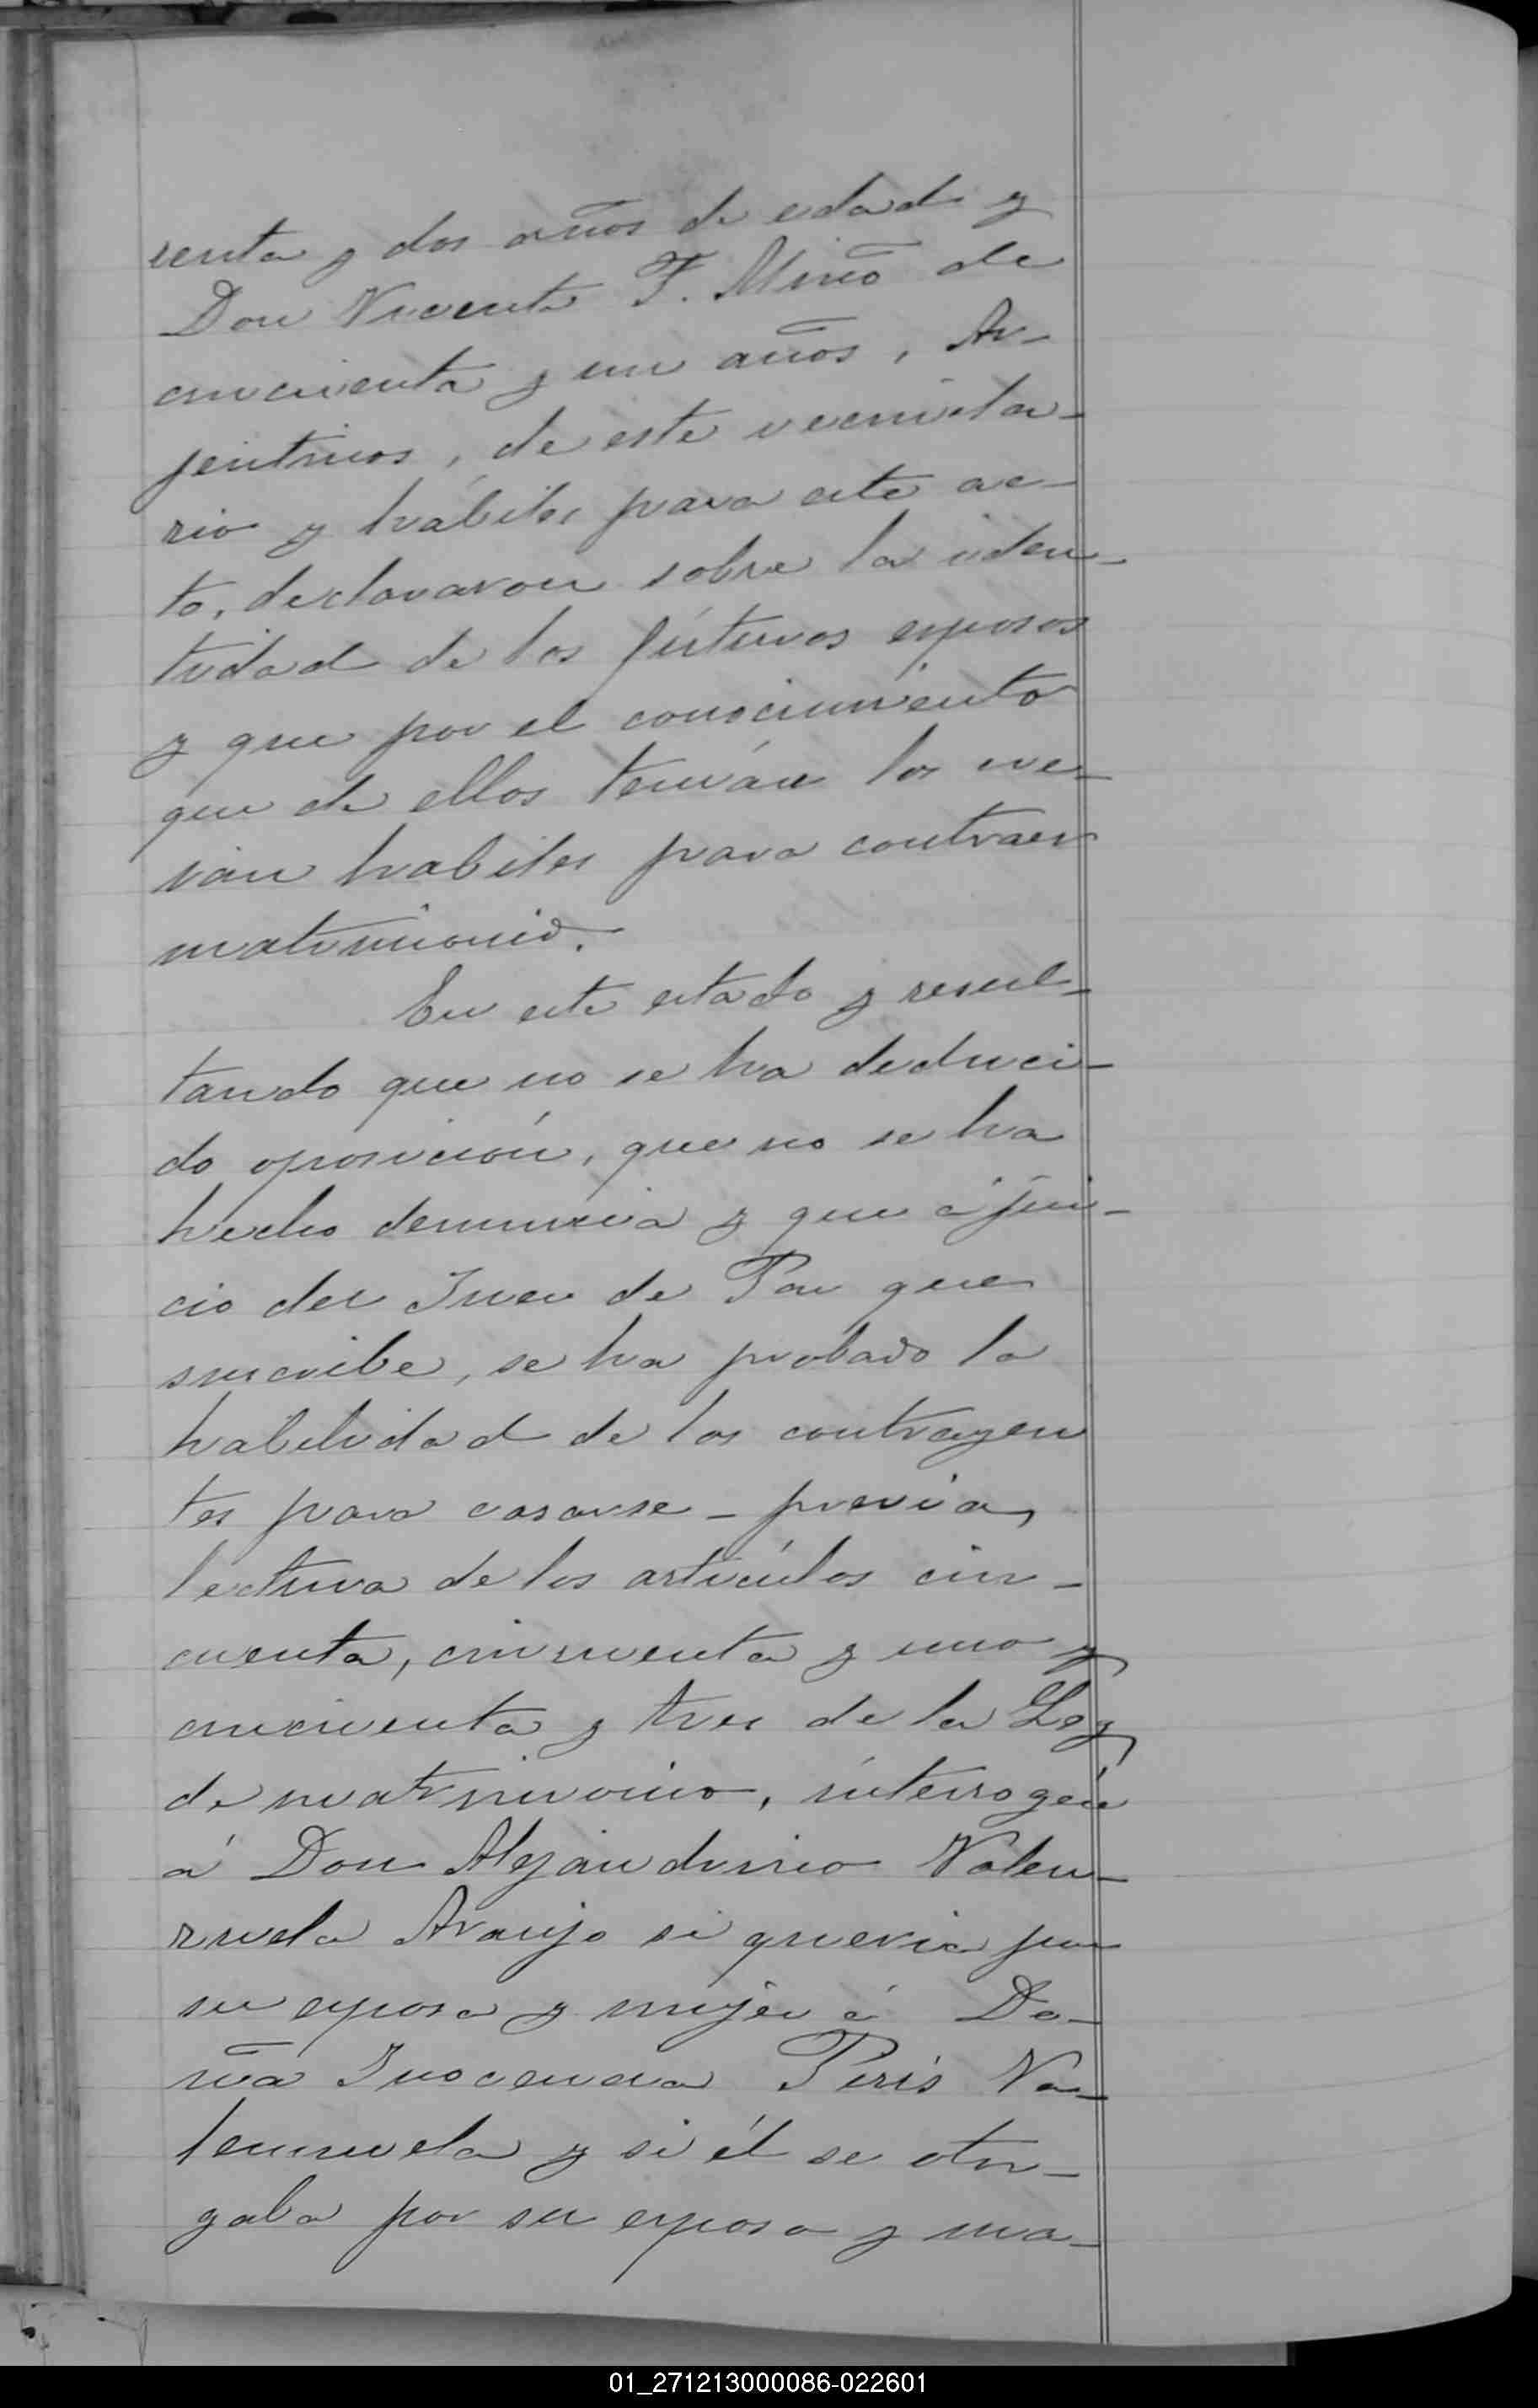 renta y dos años de edad y
Don Vicente F. Miño de
cincuenta y un años, Ar-
jentinos, de este vecinda-
rio y hábiles para este ac-
to, declararon sobre la iden-
tidad de los futuros esposos
y que por el conocimiento
que de ellos tenían los cre-
ian habiles para contraer
matrimonio.
En este estado y resul-
tando que no se ha deduci-
do oposición, que no se ha
hecho denuncia y que á jui-
cio del Juez de Paz que
suscribe, se ha probado la
habilidad de los contrayen
tes para casarse - previa
lectura de los artículos cin-
cuenta, cincuenta y uno y
cincuenta y tres de la Ley
de matrimonio, interrogué
á Don Alejandrino Valen-
zuela Araujo si queria por
su esposa y mujer á Do-
ña Inocencia Piris Va-
lenzuela y si él se otor-
gaba por su esposo y ma-
01_271213000086-022601